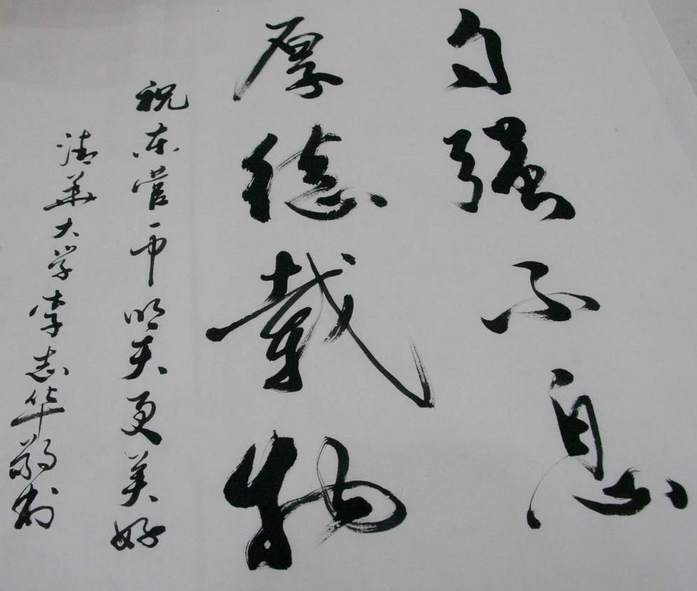 自强不息
厚德载物
祝东营市明天更美好
清华大学李志华敬书